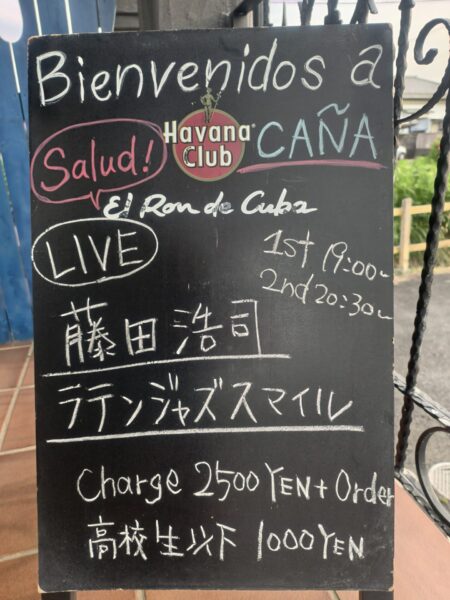 Bienvenidos a
Salud!
Havana
Club
CAÑA
El Ron de Cuba
LIVE
1st 19:00~
2nd 20:30~
藤田浩司
ラテンジャズスマイル
Charge 2500 YEN + Order
高校生以下 1000 YEN